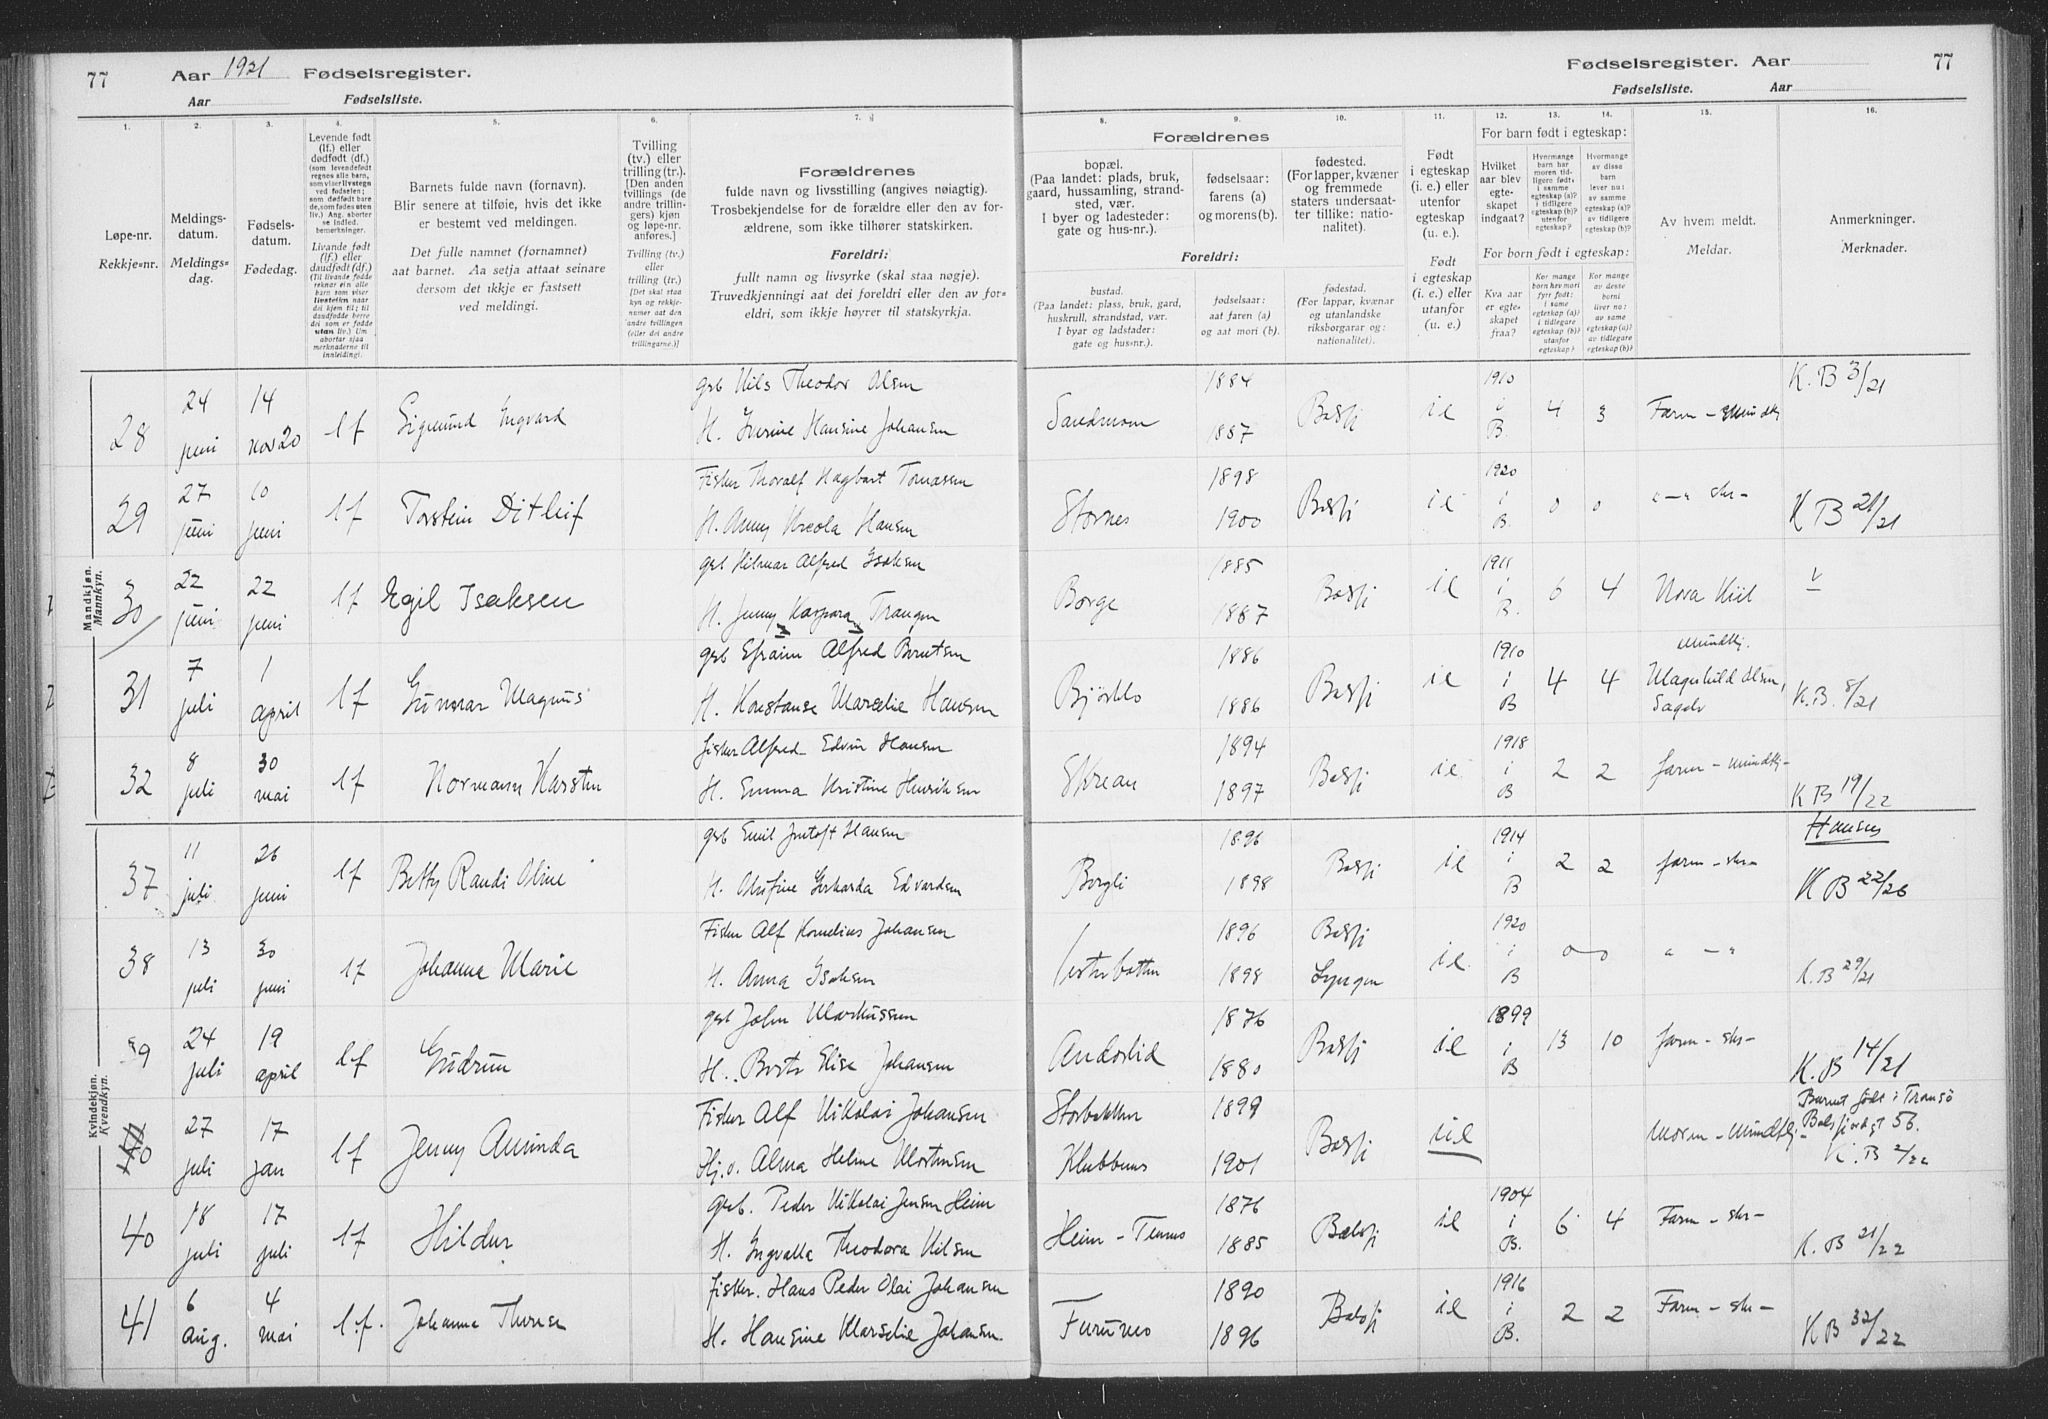 77 Aar 1921 Fødselsregister.
Aar Fødselsliste.
Fødselsregister. Aar 77
Fødselsliste. Aar
1. 2. 3. 4. 5. 6. 7. 8. 9. 10. 11. 12. 13. 14. 15. 16.
Løpe-nr.
Rekkje-nr.
Meldings-
datum.
Meldings-
dag.
Fødsels-
datum.
Fødedag.
Levende født
(lf.) eller
dødfødt (df.)
(som levendefødt
regnes alle barn,
som viser livstegn
ved fødselen;
som dødfødt bare
de, som fødes uten
liv.) Ang. aborter
se indled.
bemerkninger.
Livande født
(lf.) eller
daudfødt (df.)
(Til livande fødde
reknar ein alle
barn som viser
livsteikn naar
dei kjem til; til
daudfødde berre
dei som er fødde
utan liv.) Um
abortar sjaa
merknaderne til
innleiding).
Barnets fulde navn (fornavn).
Blir senere at tilføie, hvis det ikke
er bestemt ved meldingen.
Det fulle namnet (fornamnet)
aat barnet. Aa setja attaat seinare
dersom det ikkje er fastsett
ved meldingi.
Tvilling
(tv.) eller
trilling (tr.).
[Den anden
tvillings (de
andre trillin-
gers) kjøn
og løpe-nr.
anføres.]
Tvilling (tv.)
eller
trilling (tr.)
[Det skal staa
kyn og rekkje-
numer aat den
andre tvillingen
(eller dei andre
trillingarne.)]
Forældrenes
fulde navn og livsstilling (angives nøiagtig).
Trosbekjendelse for de forældre eller den av for-
ældrene, som ikke tilhører statskirken.
Foreldri:
fullt namn og livsyrke (skal staa nøgje).
Truvedkjenningi aat dei foreldri eller den av for-
eldri, som ikkje høyrer til statskyrkja.
Forældrenes
bopæl.
(Paa landet: plads, bruk,
gaard, hussamling, strand-
sted, vær.
I byer og ladesteder:
gate og hus-nr.).
fødselsaar:
farens (a)
og morens (b).
fødested.
(For lapper, kvæner
og fremmede
staters undersaat-
ter tillike: natio-
nalitet).
Foreldri:
bustad.
(Paa landet: plass, bruk, gard,
huskrull, strandstad, vær.
I byar og ladstader:
gate og hus-nr.).
fødselsaar:
aat faren (a)
og aat mori (b).
fødestad.
(For lappar, kvænar
og utanlandske
riksborgarar og:
nationalitet).
Født
i egteskap
(i. e.) eller
utenfor
egteskap
(u. e.).
Født
i egteskap
(i. e.) eller
utanfor
(u. e.)
For barn født i egteskap:
Hvilket
aar blev
egte-
skapet
indgaat?
Hvormange
barn har
moren tid-
ligere født:
i samme
egteskap (a)?
i tidligere
egteskap (b)?
utenfor
egteskap?
Hvormange
av disse
barn
lever nu:
av samme
egteskap (a)?
av tidligere
egteskap (b)?
For barn født i egteskap:
Kva aar
er egte-
skapet
fraa?
Kor mange
born hev mori
fyrr født:
i same
egteskap (a)?
i tidlegare
egteskap (b)?
utanfor
egteskap?
Kor mange
av desse
borni
liver no:
av same
egteskap (a)?
av tidlegare
egteskap (b)?
Av hvem meldt.
Meldar.
Anmerkninger.
Merknader.
Mandkjøn.
Mannkyn.
28 24 juni 14 nov 20 lf Sigmund Ingvard
grb Nils Theodor Olsen 1884 1910 K. B 3/21
H. Iverine Hansine Johansen Sandmoen 1887 Balsfj ie i B. 4 3 Farm - Mundtlig
29 27 juni 10 juni lf Torstein Ditleif
Fisker Thoralf Hagbart Tomassen 1898 1920
H. Anny Nicola Hansen Stornes 1900 Balsfj ie i B 0 0 " - " skr - K B 21/21
30 22 juni 22 juni lf Egil Isaksen
grb Hilmar Alfred Isaksen 1885 1911
H. Jenny Kaspara Trangen Borge 1887 Balsfj ie i B. 6 4 Nora Kiil
31 7 juli 1 april lf Gunnar Magnus
grb Efraim Alfred Berntsen 1886 1910 mundtlig.
H. Konstanse Marselie Hansen 1886 Balsfj ie i B 4 4 Magnhild Olsen, Sagelv K. B. 8/21
32 8 juli 30 mai lf Normann Karsten
fisker Alfred Edvin Hansen 1894 1918
H. Emma Kristine Henriksen 1897 Balsfj ie i B 2 2 farm - mundtlig - K B 19/22
Kvindekjøn.
Kvendkyn.
37 11 juli 26 juni lf Betty Randi Oline
grb Emil Hansen 1896 1914 Hansen
H. Gerharda Edvardsen Borgli 1898 Balsfj ie i B 2 2 farm - skr - K B 22/26
38 13 juli 30 juni lf Johanna Marie
Fisker Alf Kornelius Johansen 1896 Balsfj 1920
H. Anna Isaksen 1898 Lyngen ie i B 0 0 " - " K. B 29/21
39 24 juli 19 april lf Gudrun
grb John Markussen 1876 1899
H. Berte Elise Johansen 1880 Balsfj ie i B 13 10 farm - skr - K. B 14/21
40 27 juli 17 jan lf Jenny Aminda
Fisker Alf Nikolai Johansen Storbakken 1899 Barnet født i Tromsø
Hj.v. Alma Helene Mortensen Klubbnes 1901 Balsfj uie Moren - Mundtlig - Balsfjordgt 56. K. B 2/22
40 18 juli 17 juli lf Hildur
grb. Peder Nikolai Jensen Heim 1876 1904
H. Ingvalla Theodora Nilsen Heim - Tennes 1885 Balsfj ie i B. 6 4 Farm - skr - K. B 21/22
41 6 aug. 4 mai l.f. Johanne Therese
fisker. Hans Peder Olai Johansen 1890 1916
H. Hansine Marselie Johansen. Furumo 1896 Balsfj ie i B. 2 2 Farm - skr - K B 32/22